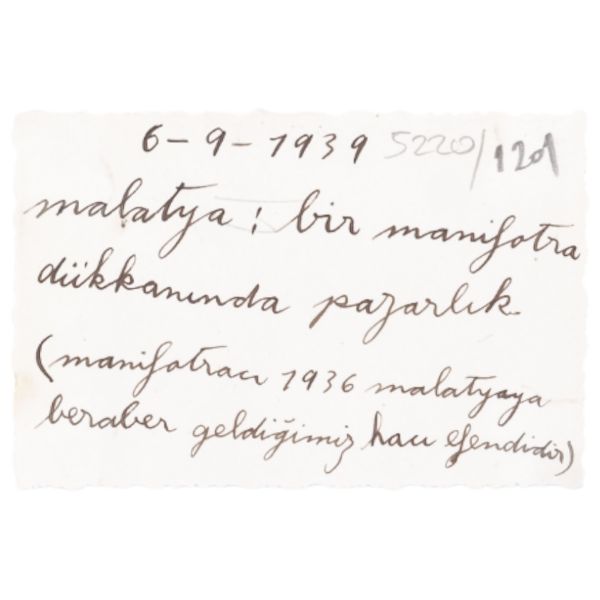 6-9-1939 5220/1201
malatya: bir manifotra
dükkanında pazarlık.
(manifotracı 1936 malatyaya
beraber geldiğimiz hacı efendidir)